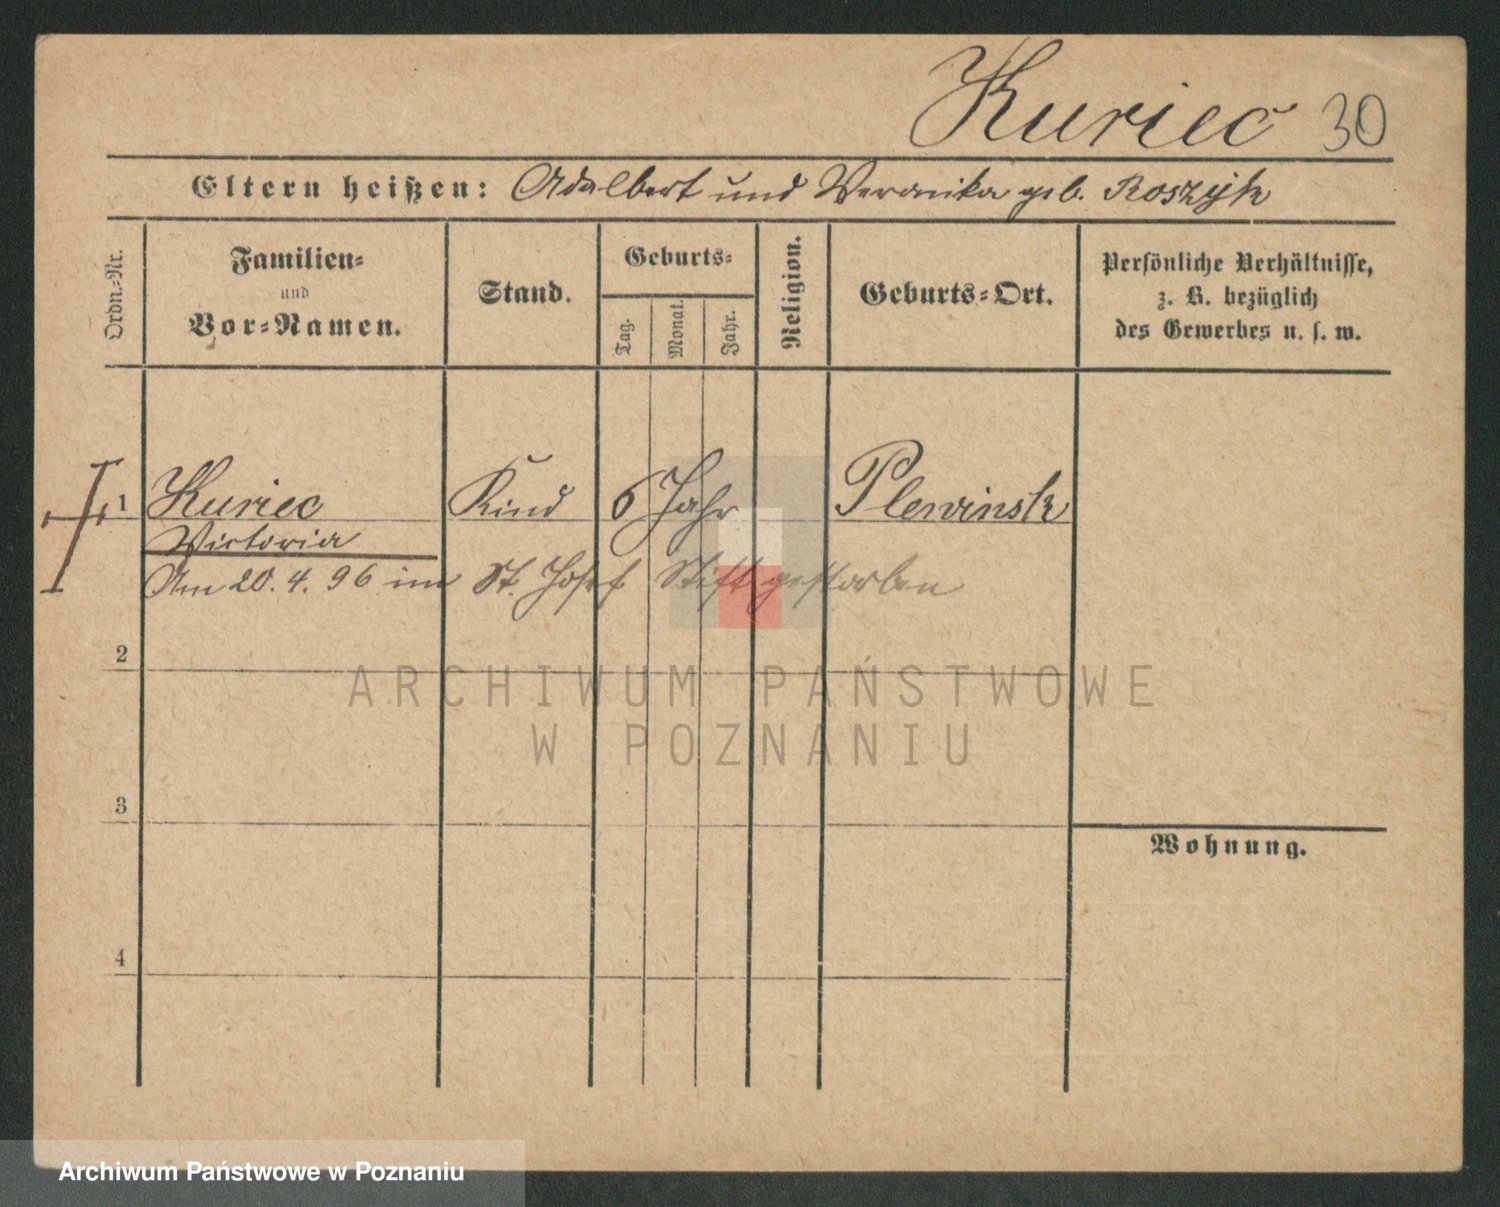 Kuriec 30
Eltern heißen: Adalbert und Veronika geb. Roszyk
Ordn.-Nr.
Familien-
und
Vor-Namen.
Stand.
Geburts-
Tag.
Monat.
Jahr.
Religion.
Geburts-Ort.
Persönliche Verhältnisse,
z. B. bezüglich
des Gewerbes u. s. w.
1 Kuriec Kind 6 Jahr Plewinsk
Victoria
Am 20. 4. 96 im St. Josef Stift gestorben
2
ARCHIWUM PAŃSTWOWE
W POZNANIU
3
Wohnung.
4
Archiwum Państwowe w Poznaniu